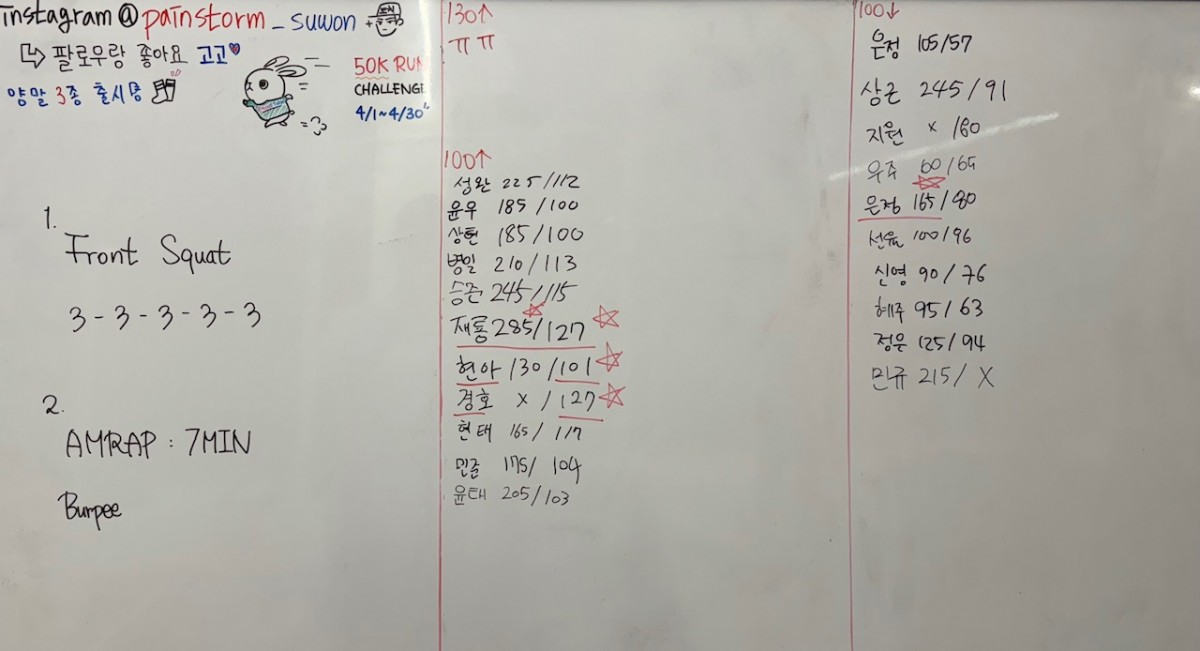 instagram@painstorm_suwon +
팔로우랑 좋아요 고고
양말 3종 출시중
50K RUN
CHALLENGE
4/1~4/30
1.
Front Squat
3-3-3-3-3
2.
AMRAP : 7MIN
Burpee
130↑
ㅠㅠ
100↑
성완 225/112
윤우 185/100
상현 185/100
병일 210/113
승준 245/115
재룡 285/127
현아 130/101
경호 x/127
현태 165/117
민준 175/104
윤태 205/103
100↓
은정 105/57
상근 245/91
지원 x/80
우주 60/65
은정 165/80
선유 100/96
신영 90/76
혜주 95/63
정은 125/94
민규 215/X